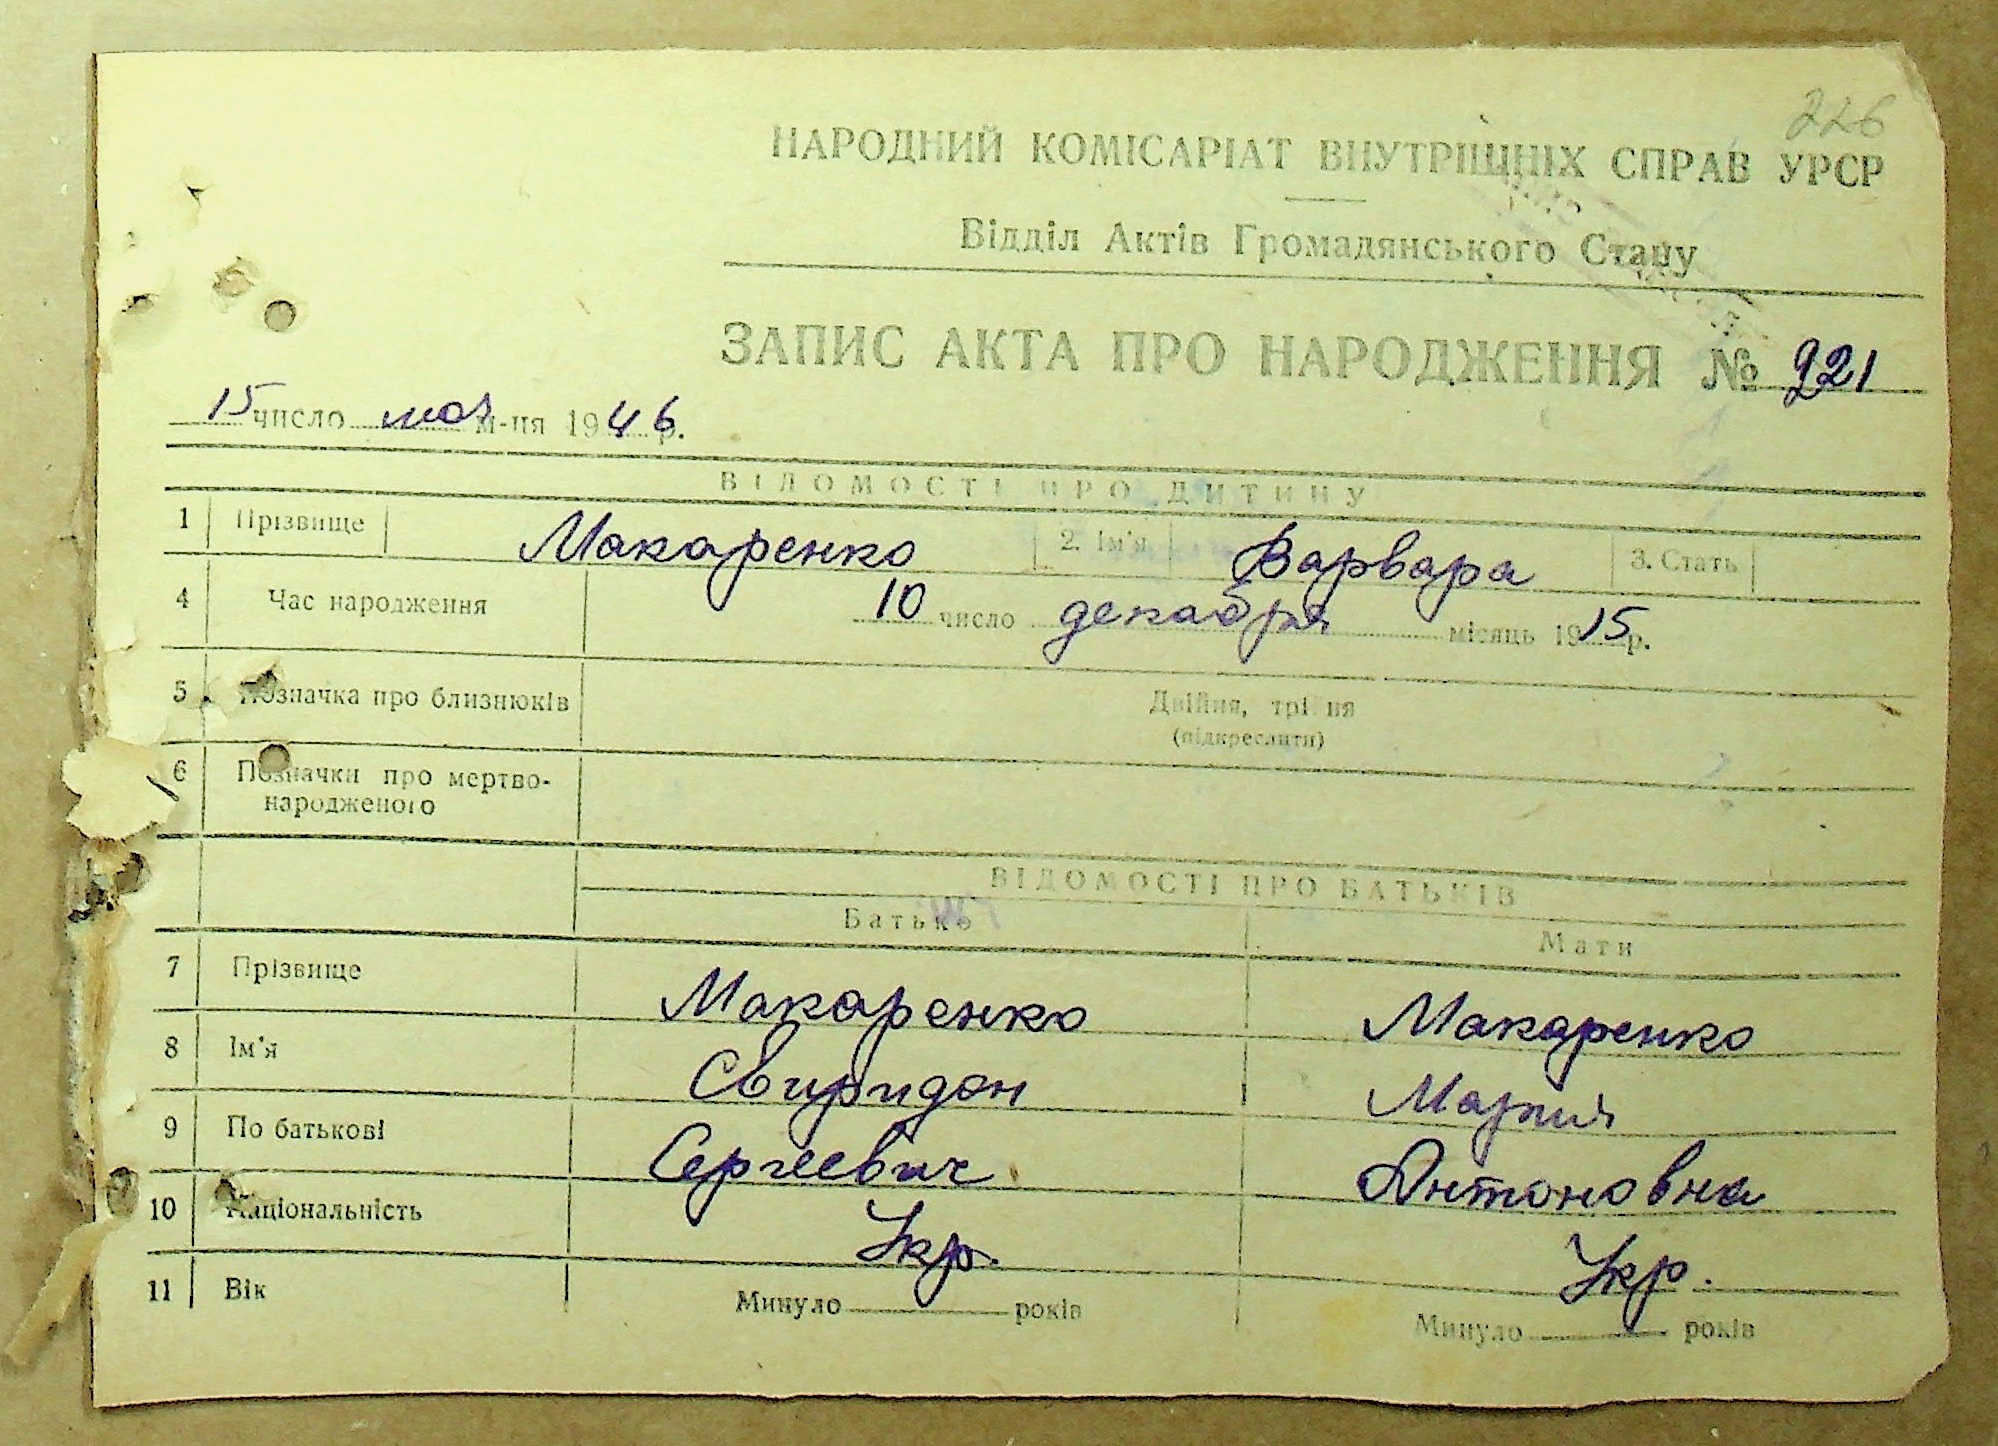 226
НАРОДНИЙ КОМІСАРІАТ ВНУТРІШНІХ СПРАВ УРСР
Відділ Актів Громадянського Стану
ЗАПИС АКТА ПРО НАРОДЖЕННЯ № 221
15 число мая м-ця 1946 р.
ВІДОМОСТІ ПРО ДИТИНУ
1 Прізвище Макаренко 2. Ім'я Варвара 3. Стать
4 Час народження 10 число декабря місяць 1915 р.
5 Позначка про близнюків Двійня, трійня
(підкреслити)
6 Позначки про мертво-
народженого
ВІДОМОСТІ ПРО БАТЬКІВ
Батько Мати
7 Прізвище Макаренко Макаренко
8 Ім'я Свиридон Мария
9 По батькові Сергеевич Антоновна
10 Національність Укр. Укр.
11 Вік Минуло років Минуло років